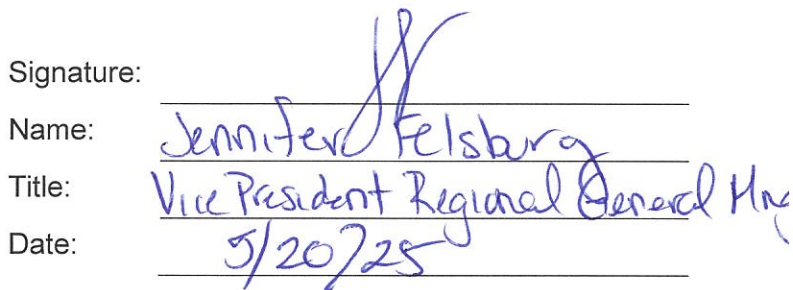 Signature:
Name: Jennifer Felsburg
Title: Vice President Regional General Mng
Date: 5/20/25